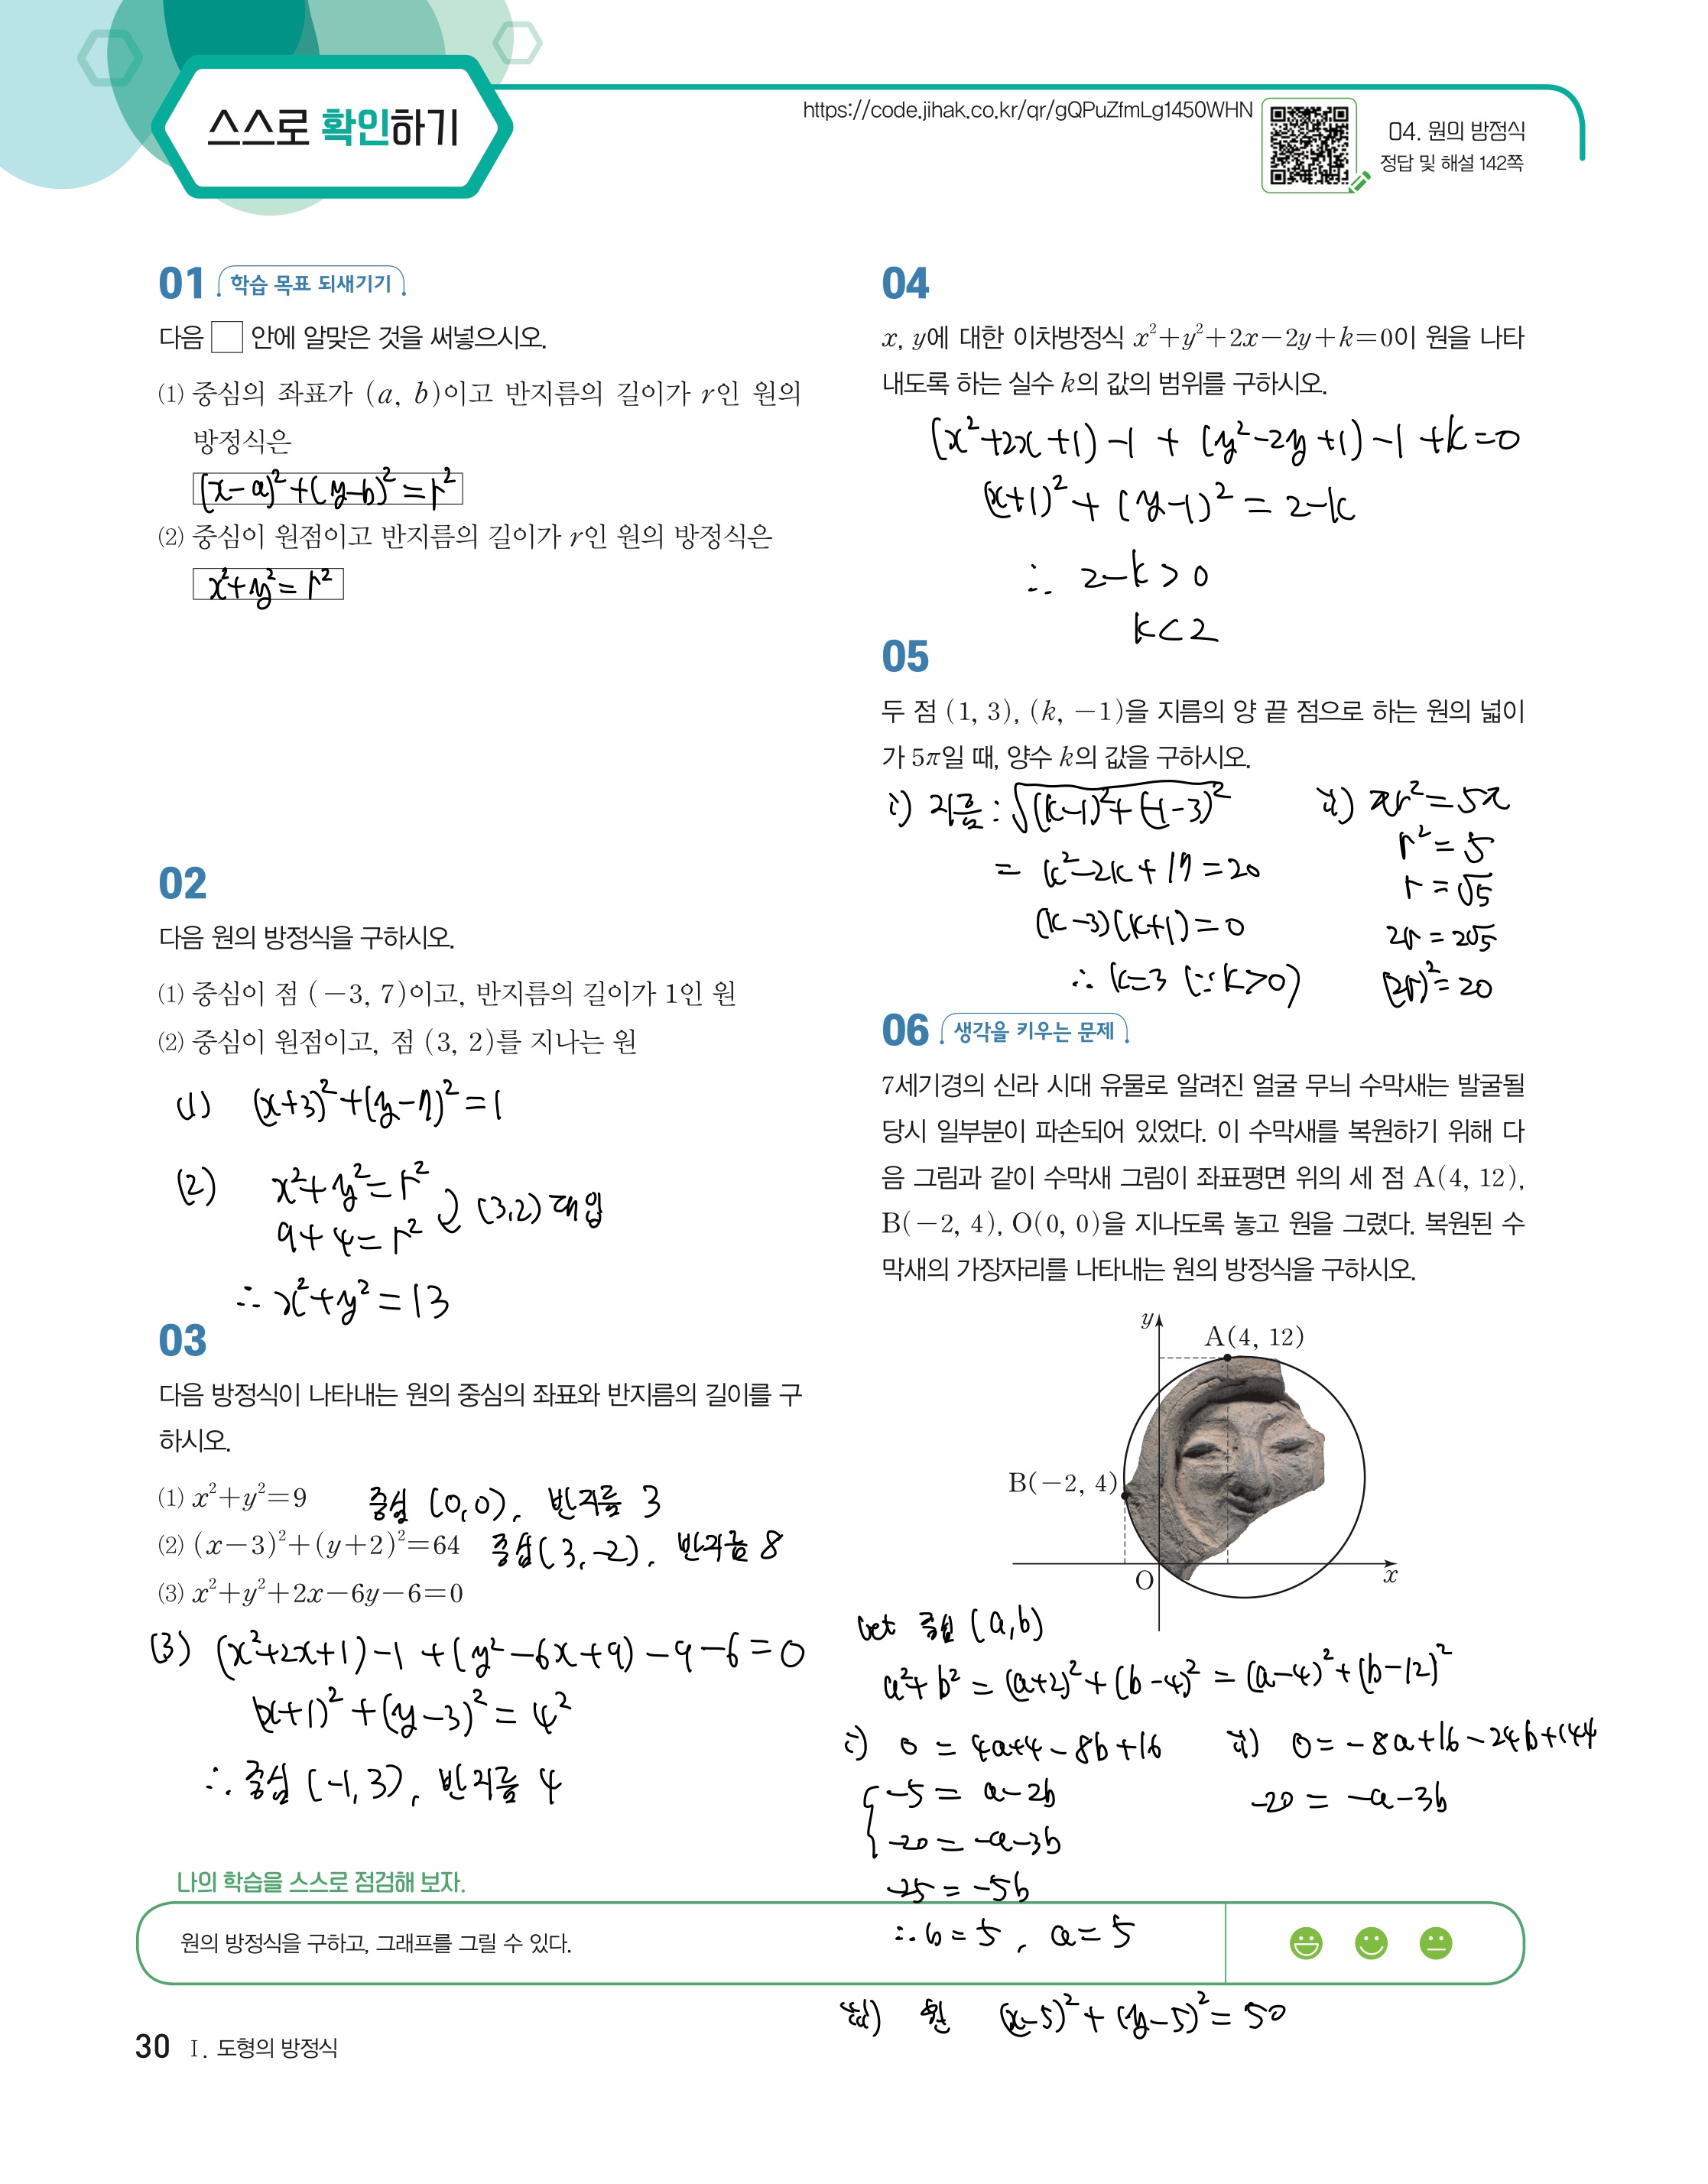 스스로 확인하기
https://code.jihak.co.kr/qr/gQPuZfmLg1450WHN
04. 원의 방정식
정답 및 해설 142쪽
01 학습 목표 되새기기
다음 □ 안에 알맞은 것을 써넣으시오.
⑴ 중심의 좌표가 (a, b)이고 반지름의 길이가 r인 원의
방정식은
(x-a)²+(y-b)²=r²
⑵ 중심이 원점이고 반지름의 길이가 r인 원의 방정식은
x²+y²=r²
02
다음 원의 방정식을 구하시오.
⑴ 중심이 점 (-3, 7)이고, 반지름의 길이가 1인 원
⑵ 중심이 원점이고, 점 (3, 2)를 지나는 원
(1) (x+3)²+(y-7)²=1
(2) x²+y²=r²
9+4=r² (3,2) 대입
∴ x²+y²=13
03
다음 방정식이 나타내는 원의 중심의 좌표와 반지름의 길이를 구
하시오.
⑴ x²+y²=9 중심 (0,0), 반지름 3
⑵ (x-3)²+(y+2)²=64 중심(3,-2), 반지름 8
⑶ x²+y²+2x-6y-6=0
(3) (x²+2x+1)-1+(y²-6x+9)-9-6=0
(x+1)²+(y-3)²=4²
∴ 중심 (-1,3), 반지름 4
04
x, y에 대한 이차방정식 x²+y²+2x-2y+k=0이 원을 나타
내도록 하는 실수 k의 값의 범위를 구하시오.
(x²+2x+1)-1+(y²-2y+1)-1+k=0
(x+1)²+(y-1)²=2-k
∴ 2-k>0
k<2
05
두 점 (1, 3), (k, -1)을 지름의 양 끝 점으로 하는 원의 넓이
가 5π일 때, 양수 k의 값을 구하시오.
i) 지름 : √(k-1)²+(-1-3)²
= k²-2k+17=20
(k-3)(k+1)=0
∴ k=3 (∵k>0)
ii) πr²=5π
r²=5
r=√5
2r=2√5
(2r)²=20
06 생각을 키우는 문제
7세기경의 신라 시대 유물로 알려진 얼굴 무늬 수막새는 발굴될
당시 일부분이 파손되어 있었다. 이 수막새를 복원하기 위해 다
음 그림과 같이 수막새 그림이 좌표평면 위의 세 점 A(4, 12),
B(-2, 4), O(0, 0)을 지나도록 놓고 원을 그렸다. 복원된 수
막새의 가장자리를 나타내는 원의 방정식을 구하시오.
y
A(4, 12)
B(-2, 4)
O
x
let 중심 (a,b)
a²+b²=(a+2)²+(b-4)²=(a-4)²+(b-12)²
i) 0=4a+4-8b+16
-5=a-2b
-20=-a-3b
-25=-5b
∴ b=5, a=5
ii) 0=-8a+16-24b+144
-20=-a-3b
iii) 원 (x-5)²+(y-5)²=50
나의 학습을 스스로 점검해 보자.
원의 방정식을 구하고, 그래프를 그릴 수 있다.
30 Ⅰ. 도형의 방정식